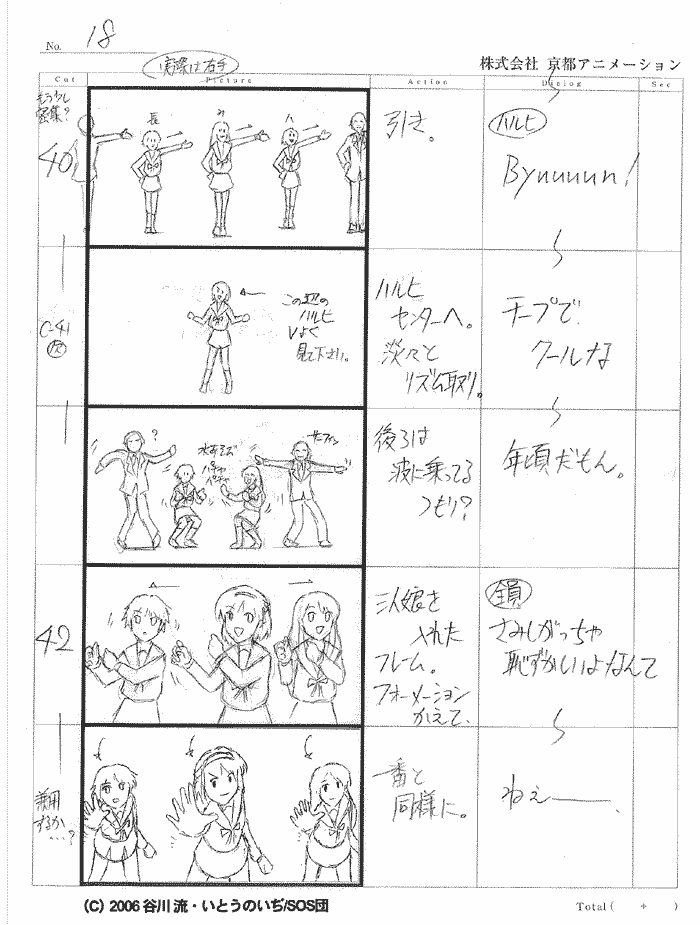 No. 18
実際は右手
株式会社 京都アニメーション
Cut Picture Action Dialog Sec
もう少し
密集?
40
長 み ハ
引き。
ハルヒ
Byuuuun!
C-41
欠
この辺の
ハルヒ
よく
見て下さい。
ハルヒ
センターへ。
淡々と
リズム取り。
チープで
クールな
?
水あそび
パチャ
パチャ
サーフィン
後ろは
波に乗ってる
つもり?
年頃だもん。
42
三人娘を
入れた
フレーム。
フォーメーション
かえて、
全員
さみしがっちゃ
恥ずかしいよなんて
兼用
するか
…?
一番と
同様に。
ねぇ――、
(C) 2006 谷川 流・いとうのいぢ/SOS団
Total ( + )